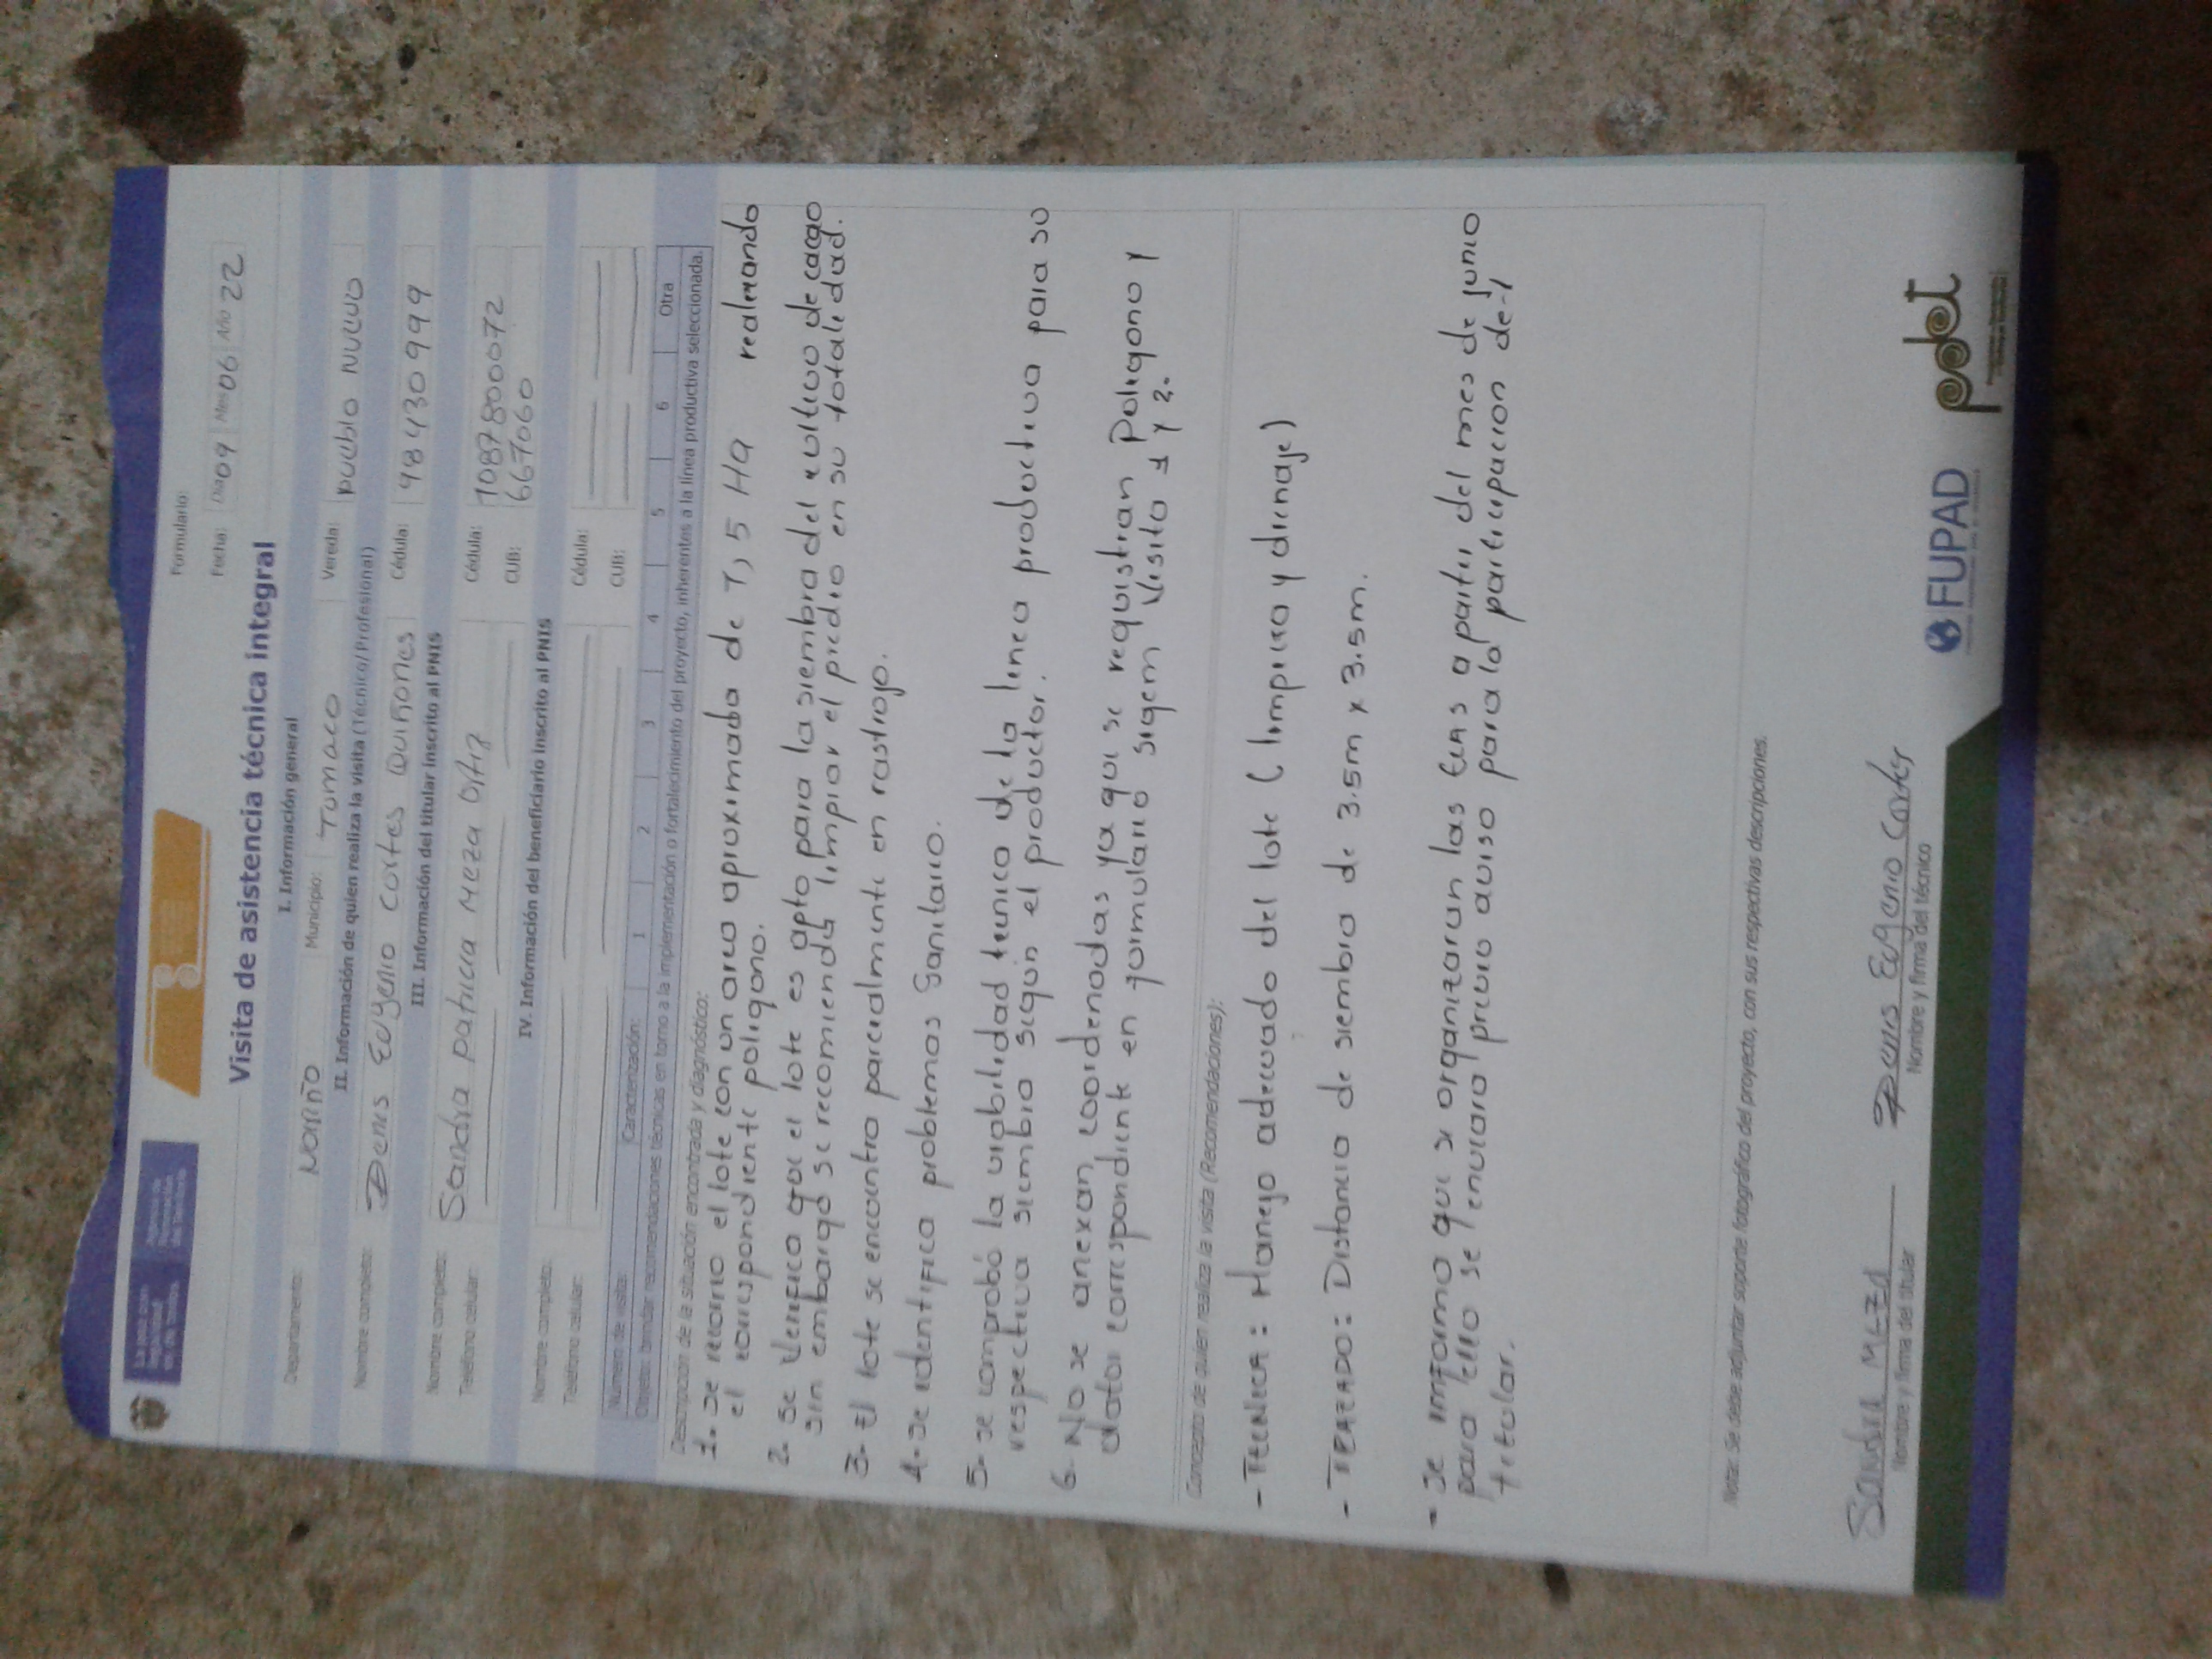 Formulario:
Fecha: Día 09 Mes 06 Año 22
Visita de asistencia técnica integral
I. Información general
Departamento: Nariño Municipio: Tumaco Vereda: pueblo Nuevo
II. Información de quien realiza la visita (Técnico/Profesional)
Nombre completo: Denis Eugenio Cortes Quiñones Cédula: 98430999
III. Información del titular inscrito al PNIS
Nombre completo: Sandra patricia Meza Ortiz Cédula: 1087800072
Teléfono celular: CUB: 667060
IV. Información del beneficiario inscrito al PNIS
Nombre completo: Cédula:
Teléfono celular: CUB:
Número de visita: Caracterización: 1 2 3 4 5 6 Otra
Objeto: brindar recomendaciones técnicas en torno a la implementación o fortalecimiento del proyecto, inherentes a la línea productiva seleccionada.
Descripción de la situación encontrada y diagnóstico:
1- se recorrio el lote con un area aproximada de 1,5 Ha realizando
el correspondiente poligono.
2- Se Verifico que el lote es apto para la siembra del cultivo de cacao
sin embargo se recomienda limpiar el predio en su totalidad.
3- El lote se encontro parcialmente en rastrojo.
4- se identifico problemas Sanitario.
5- se comprobó la viabilidad tecnica de la linea productiva para su
respectiva siembra según el productor.
6- No se anexan coordenadas ya que se requistran Poligono y
dator correspondiente en formulario sigem Visita 1 y 2.
Concepto de quien realiza la visita (Recomendaciones):
- TECNICA: Manejo adecuado del lote (limpieza y drenaje)
- TRAZADO: Distancia de siembra de 3.5m x 3.5m.
- se informo que se organizaran las ECAS a partir del mes de junio
para ello se enviara previo aviso para la participacion del
titular.
Notas: Se debe adjuntar soporte fotográfico del proyecto, con sus respectivas descripciones.
Sandra Meza Denis Eugenio Cortes
Nombre y firma del titular Nombre y firma del técnico
FUPAD pdet